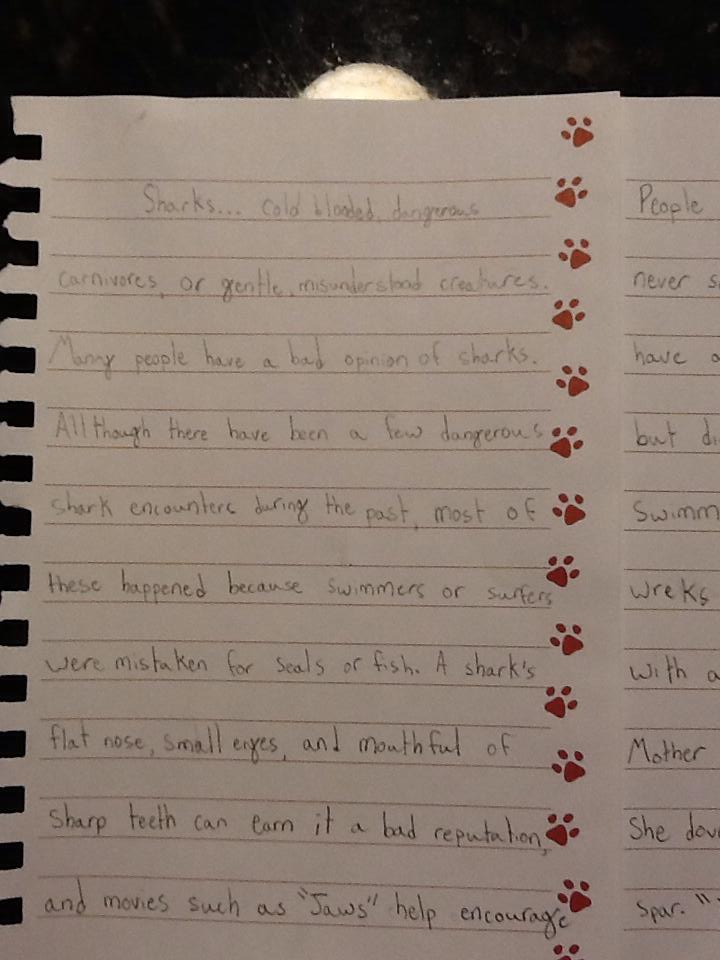 Sharks... cold blooded, dangerous
carnivores, or gentle, misunderstood creatures.
Many people have a bad opinion of sharks.
Allthough there have been a few dangerous
shark encounters during the past, most of
these happened because swimmers or surfers
were mistaken for seals or fish. A shark's
flat nose, small eyes, and mouthful of
sharp teeth can earn it a bad reputation,
and movies such as "Jaws" help encourage
People
never s
have a
but di
Swimm
wreks
with a
Mother
She dov
spar. "